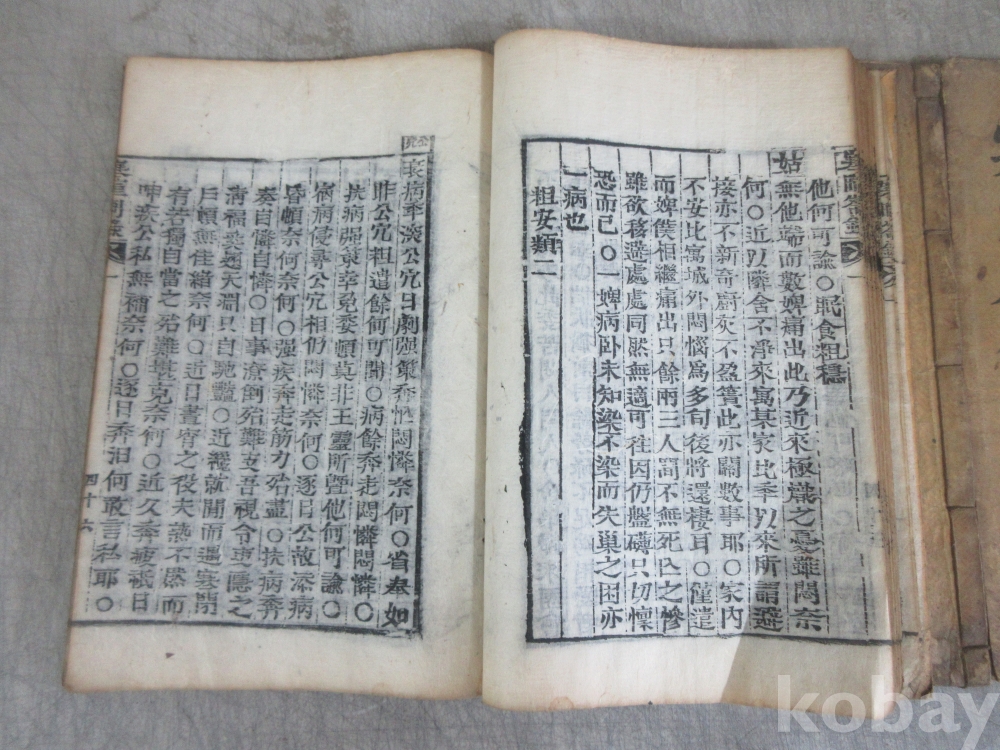 他何可諭○眠食粗穩
姑無他端而數婢痛出此乃近來極熾之憂雖悶奈
何○近以鄰舍不淨來寓某家比季以來所謂避
接亦不新奇廚灰不盈簣此亦關數事耶○家內
不安比寓城外悶惱爲多旬後將還棲耳○僅遣
而婢僕相繼痛出只餘兩三人間不無死亡之慘
雖欲移避處處同然無適可往因仍盤礴只切懍
恐而已○一婢病臥未知染不染而失巢之困亦
一病也
粗安類二
公冗
衰病奔淡公冗日劇强策奔忙悶憐奈何○省奉如
昨公冗粗遣餘何可聞○病餘奔走悶憐悶憐○
扶病强策幸免委頓莫非王靈所曁他何可諭○
宿病侵尋公冗相仍悶憐奈何○逐日公故添病
昏頓奈何奈何○强疾奔走筋力殆盡○扶病奔
奏自憐自憐○日事
殆難支吾視令更隱之
淸福奚趐天淵只自馳艶○近
就閒而遇寒閉
戶頓無佳緖奈何○近日晝宵之役夫孰不然而
有若獨自當之殆難堪克奈何○近久奔疲祗日
呻疾公私無補奈何○逐日奔汨何敢言私耶○
四十六
kobay